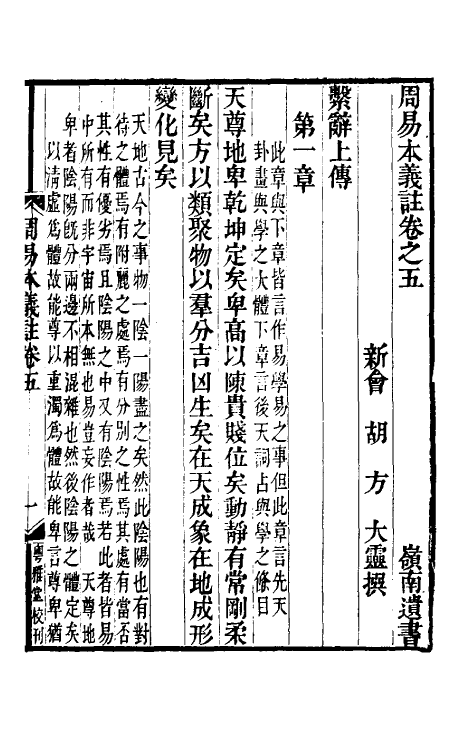 周易本義註卷之五
嶺南遺書
新會 胡方 大靈撰
繫辭上傳
第一章
此章與下章皆言作易學易之事但此章言先天
卦畫與學之大體下章言後天詞占與學之條目
天尊地卑乾坤定矣卑高以陳貴賤位矣動靜有常剛柔
斷矣方以類聚物以羣分吉凶生矣在天成象在地成形
變化見矣
天地古今之事物一陰一陽盡之矣然此陰陽也有對
待之體焉有附麗之處焉有分別之性焉其處有當否
其性有優劣焉且陰陽之中又有陰陽焉若此者皆易
中所有而非宇宙所本無也易豈妄作者哉 天尊地
卑者陰陽旣分兩邊不相混雜也然後陰陽之體定矣
以清虛爲體故能尊以重濁爲體故能卑言尊卑猶
周易本義註卷五
一
粵雅堂校刊